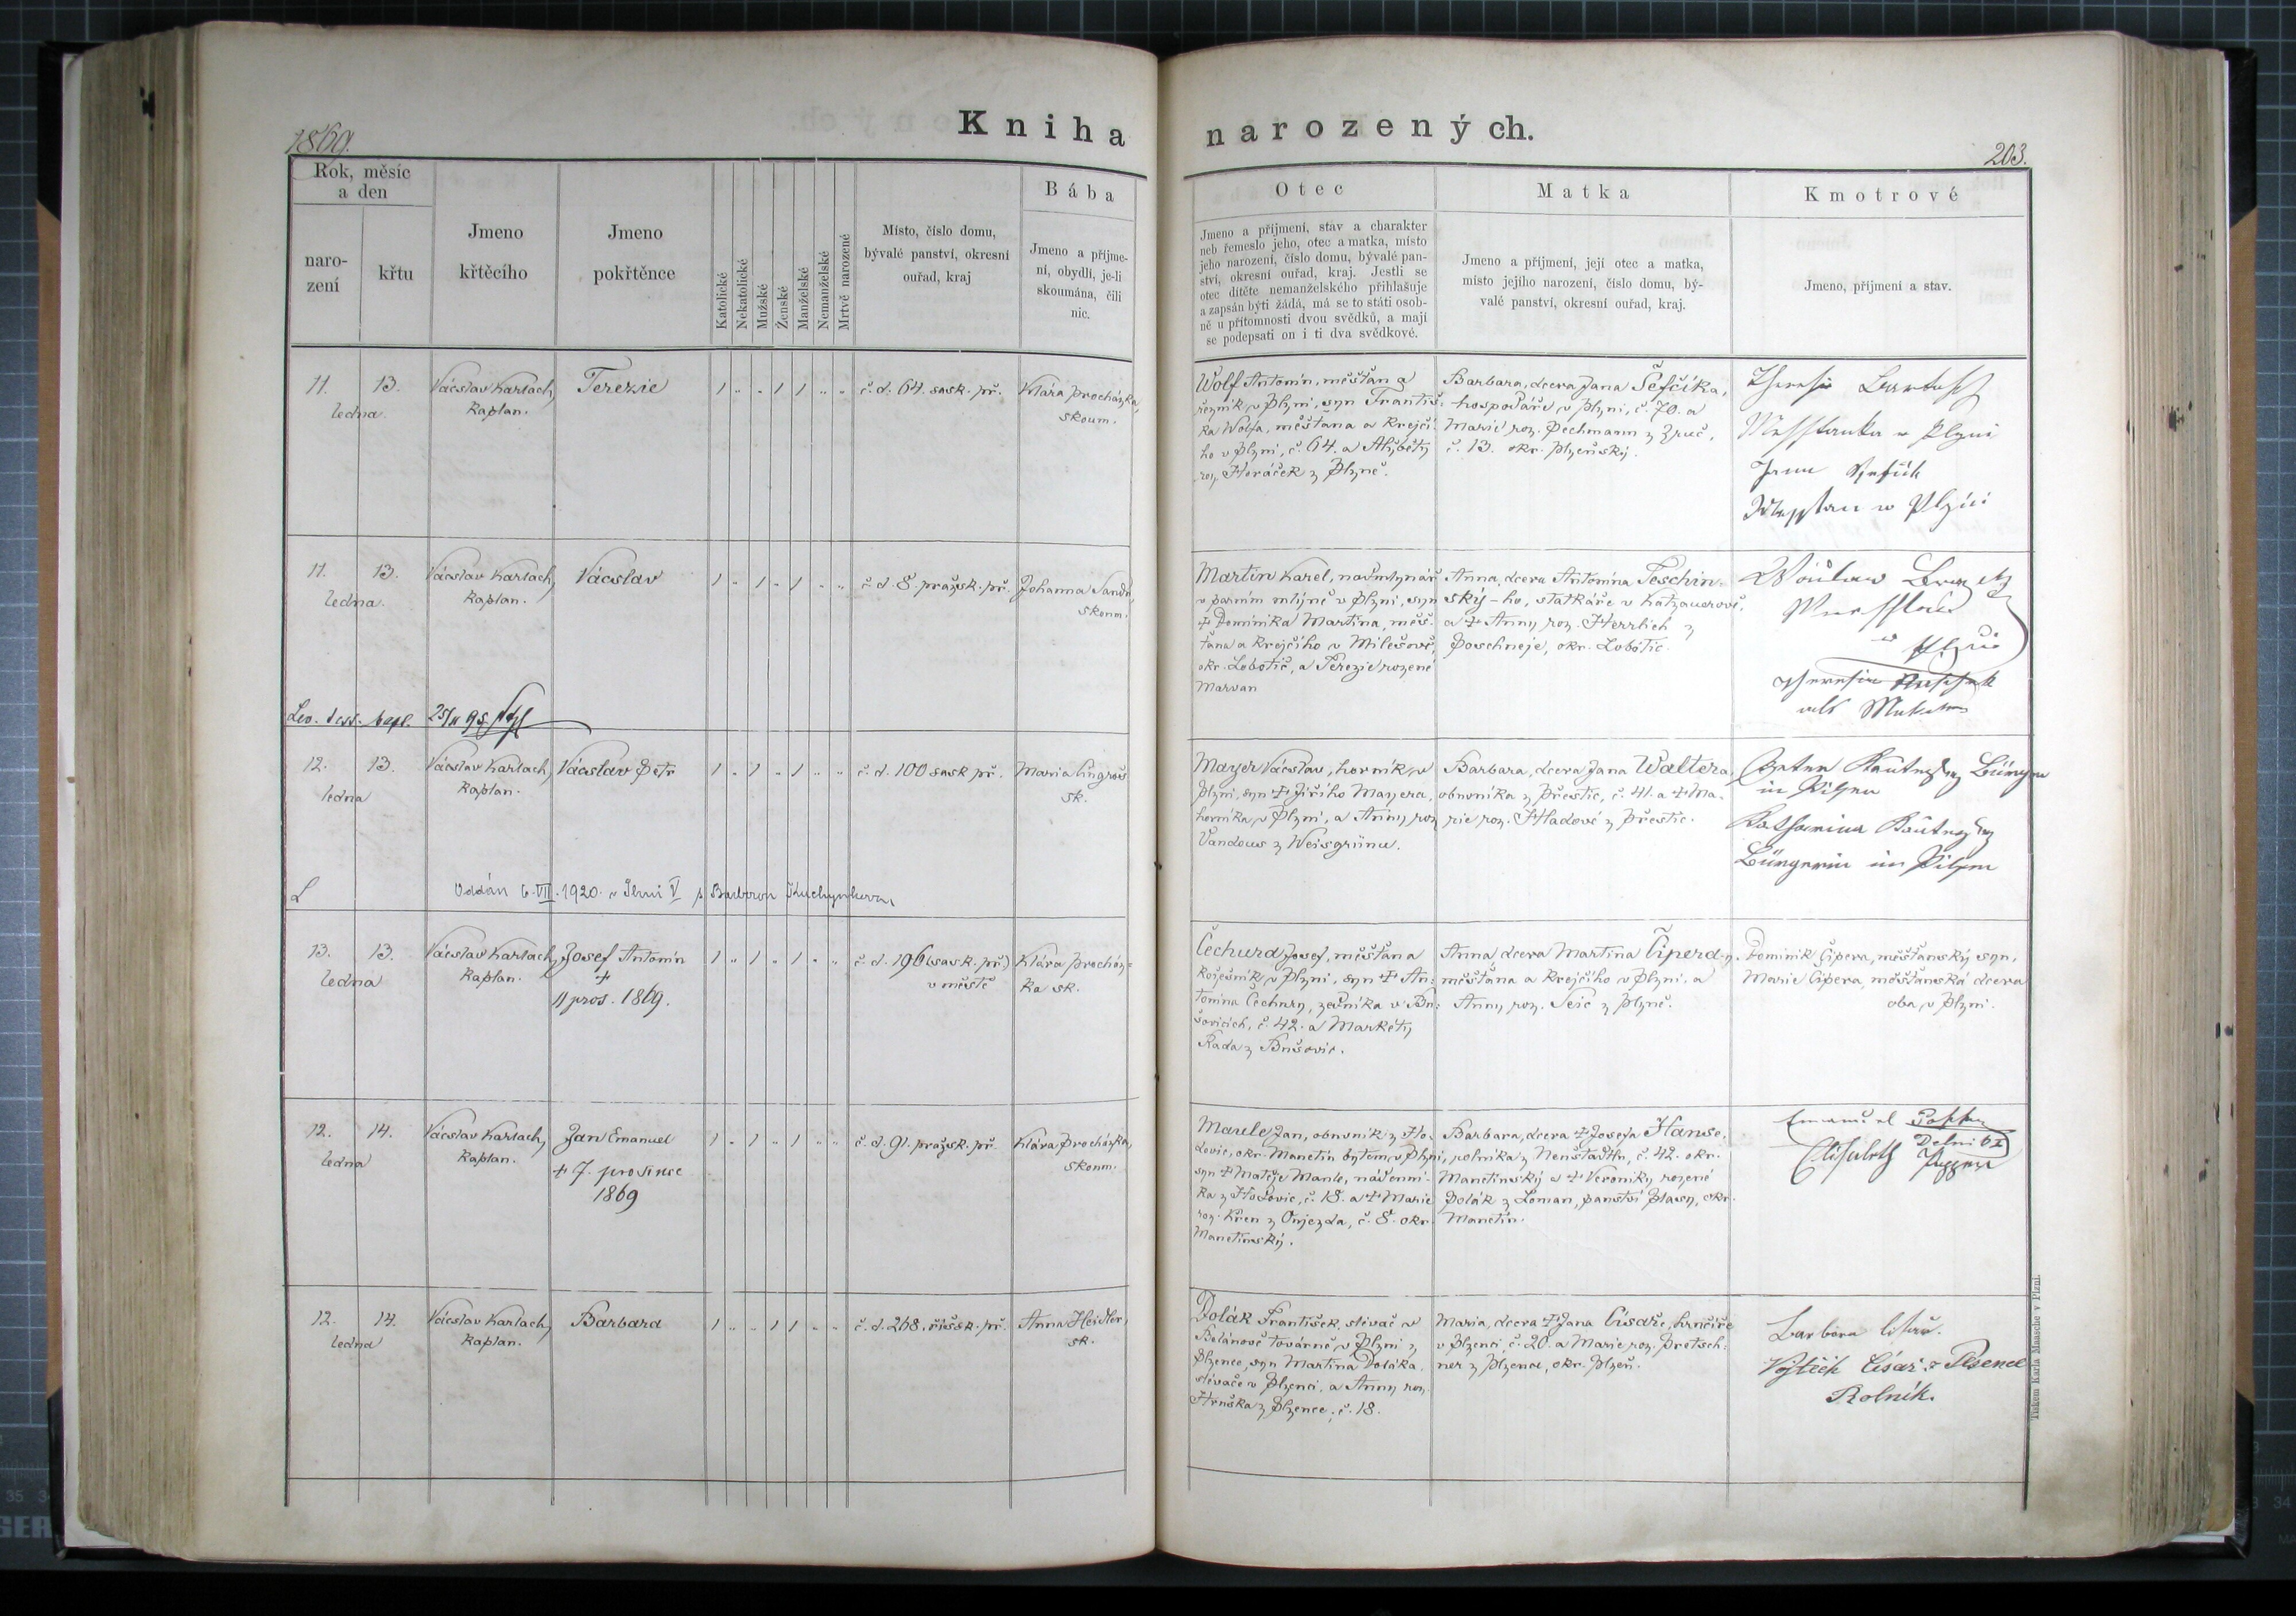 1869.
Kniha narozených.
203.
Rok, měsíc
a den
naro-
zení
křtu
Jmeno
křtěcího
Jmeno
pokřtěnce
Katolické
Nekatolické
Mužské
Ženské
Manželské
Nemanželské
Mrtvě narozené
Místo, číslo domu,
bývalé panství, okresní
ouřad, kraj
Bába
Jmeno a příjme-
ní, obydlí, je-li
skoumána, čili
nic.
Otec
Jmeno a příjmení, stav a charakter
neb řemeslo jeho, otec a matka, místo
jeho narození, číslo domu, bývalé pan-
ství, okresní ouřad, kraj. Jestli se
otec dítěte nemanželského přihlašuje
a zapsán býti žádá, má se to státi osob-
ně u přítomnosti dvou svědků, a mají
se podepsati on i ti dva svědkové.
Matka
Jmeno a příjmení, její otec a matka,
místo jejího narození, číslo domu, bý-
valé panství, okresní ouřad, kraj.
Kmotrové
Jmeno, příjmení a stav.
11. 13.
ledna.
Václav Karlach,
Kaplan.
Terezie
1 „ „ 1 1 „ „
č. d. 64. sask. př.
Klára Procházka,
skoum.
Wolf Antonín, měšťan a
řezník v Plzni, syn Františ-
ka Wolfa, měšťana a krejčí-
ho v Plzni, č. 64. a Alžběty
roz. Horáček z Plzně.
Barbara, dcera Jana Šefčíka,
hospodáře v Plzni, č. 70. a
Marie roz. Pechmann z Zruč,
č. 13. okr. plzeňský.
w Plzni
11. 13.
ledna.
Václav Karlach,
Kaplan.
Václav
1 „ 1 „ 1 „ „
č. d. 8 pražsk. př.
Johanna
skoum.
Martin Karel, nadmlynář
v parním mlýně v Plzni, syn
+ Dominika Martina, měš-
ťana a krejčího v Milešově,
okr. Lobotic, a Terezie rozené
Marvan
Anna, dcera Antonína Teschin-
ský-ho, statkáře v Katzauerově,
a + Anny roz. Herrlich z
Poschneje, okr. Lobotic.
12. 13.
ledna
Václav Karlach,
Kaplan.
Václav Petr
1 „ 1 „ 1 „ „
č. d. 100 sask. př.
Maria
sk.
Mayer Václav, horník v
Plzni, syn + Jiřího Mayera,
horníka v Plzni, a Anny roz.
Vandous z Weisgrünu.
Barbara, dcera Jana Waltera,
obuvníka z Přestic, č. 41. a + Ma-
rie roz. Hladové z Přestic.
Bürger
in Pilsen
Katharina
Bürgerin in Pilsen
Oddán 6.VII.1920. v Plzni V s Barborou Kuchynkovou
13. 13.
ledna
Václav Karlach,
Kaplan.
Josef Antonín
+
11 pros. 1869.
1 „ 1 „ 1 „ „
č. d. 196 (sask. př.)
v městě
Klára Procház-
ka sk.
Čechura Josef, měšťan a
kožešník v Plzni, syn + An-
tonína Čechury, zedníka v Bu-
šovicích, č. 42. a Markéty
Rada z Bušovic.
Anna, dcera Martina Čipera-y,
měšťana a krejčího v Plzni, a
Anny roz. Seic z Plzně.
Dominik Čipera, měšťanský syn,
Marie Čipera, měšťanská dcera
oba v Plzni.
12. 14.
ledna
Václav Karlach,
Kaplan.
Jan Emanuel
+ 7. prosince
1869
1 „ 1 „ 1 „ „
č. d. 91. pražsk. př.
Klára Procházka,
skoum.
Maule Jan, obuvník z Ho-
dovic, okr. Manetín bytem v Plzni,
syn + Matěje Maule, nádenní-
ka z Hodovic, č. 18. a + Marie
roz. Křen z Oujezda, č. 8. okr.
Manetínský.
Barbara, dcera + Josefa Hanse,
rolníka z Neustadtln, č. 42. okr.
Manetínský a + Veroniky rozené
Polák z Loman, panství Plasy, okr.
Manetín.
Emanuel
Elisabeth
12. 14.
ledna
Václav Karlach,
Kaplan.
Barbara
1 „ „ 1 1 „ „
č. d. 268. říšsk. př.
Anna Heidler,
sk.
Dolák František, slévač v
továrně v Plzni z
Plzence, syn Martina Doláka,
slévače v Plzenci, a Anny roz.
Hruška z Plzence, č. 18.
Maria, dcera + Jana Císaře, hrnčíře
v Plzenci, č. 20. a Marie roz. Pretsch-
ner z Plzence, okr. Plzeň.
Barbora Císař.
Vojtěch Císař z Plsence
Rolník.
Tiskem Karla Maasche v Plzni.